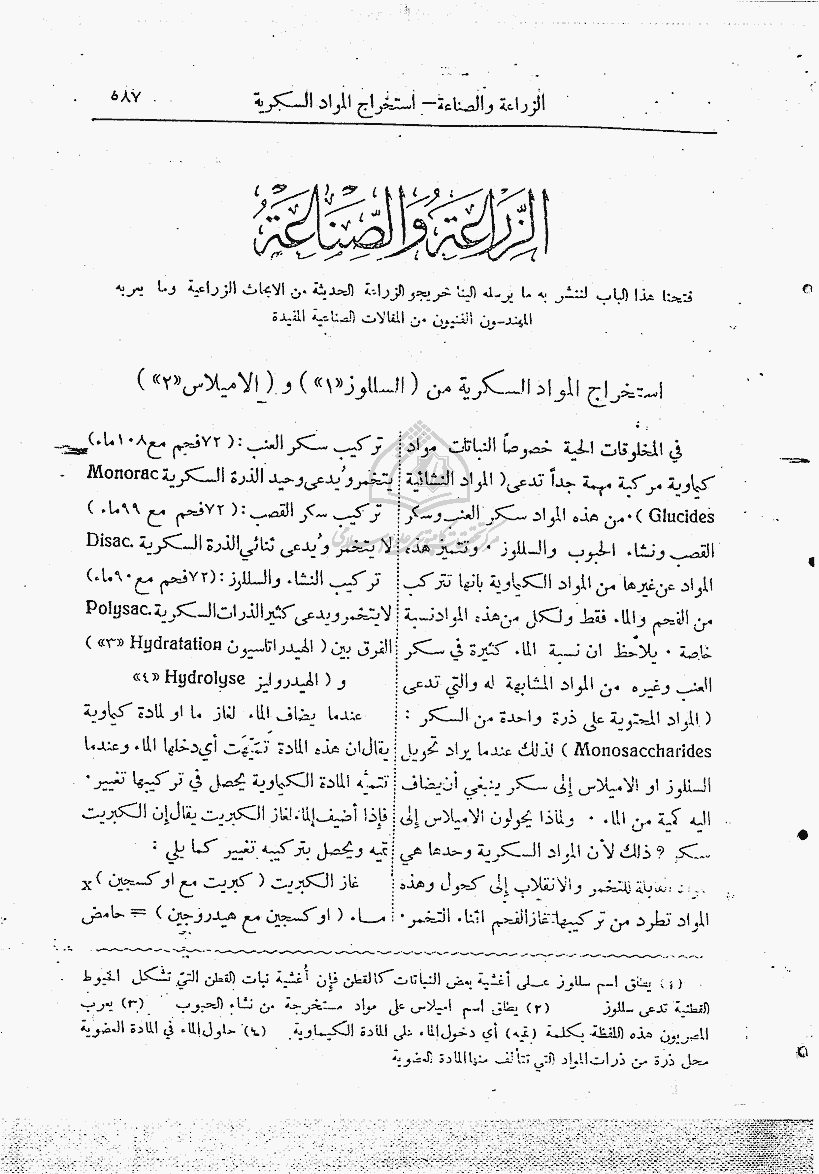 الزراعة والصناعة — استخراج المواد السكرية
٥٨٧
الزِّرَاعَةُ وَالصِّنَاعَةُ
فتحنا هذا الباب لننشر به ما يرسله الينا خريجو الزراعة الحديثة من الابحاث الزراعية وما يعربه
المهندسون الفنيون من المقالات الصناعية المفيدة
استخراج المواد السكرية من ( السللوز «١» ) و ( الاميلاس «٢» )
في المخلوقات الحية خصوصاً النباتات مواد
كياوية مركبة مهمة جداً تدعى ( المواد النشائية
Glucides ) ٠ من هذه المواد سكر العنب وسكر
القصب ونشاء الحبوب والسللوز ٠ وتتميز هذه
المواد عن غيرها من المواد الكياوية بانها تتركب
من الفحم والماء فقط ولكل من هذه المواد نسبة
خاصة ٠ يلاحظ ان نسبة الماء كثيرة في سكر
العنب وغيره من المواد المشابهة له والتي تدعى
( المواد المحتوية على ذرة واحدة من السكر :
Monosaccharides ) لذلك عندما يراد تحويل
السللوز او الاميلاس إلى سكر ينبغي أن يضاف
اليه كمية من الماء ٠ ولماذا يحولون الاميلاس إلى
سكر ؟ ذلك لأن المواد السكرية وحدها هي
القابلة للتخمر والانقلاب إلى كحول وهذه
المواد تطرد من تركيبها غاز الفحم اثناء التخمر ٠
تركيب سكر العنب : ( ٧٢ فحم مع ١٠٨ ماء )
يتخمر ويُدعى وحيد الذرة السكرية Monorac
تركيب سكر القصب : ( ٧٢ فحم مع ٩٩ ماء )
لا يتخمر ويُدعى ثنائي الذرة السكرية Disac.
تركيب النشاء والسللوز : ( ٧٢ فحم مع ٩٠ ماء )
لا يتخمر ويدعى كثير الذرات السكرية Polysac.
الفرق بين ( الهيدراتاسيون Hydratation «٣» )
و ( الهيدروليز Hydrolyse «٤»
عندما يضاف الماء لغاز ما او لمادة كياوية
يقال ان هذه المادة تميَّهت أي دخلها الماء وعندما
تتميَّه المادة الكياوية يحصل في تركيبها تغيير ٠
فإذا أضيف الماء لغاز الكبريت يقال إن الكبريت
تميه ويحصل بتركيبه تغيير كما يلي :
غاز الكبريت ( كبريت مع اوكسجين ) x
مــاء ( اوكسجين مع هيدروجين ) = حامض
(١) يطلق اسم سللوز عـلى أغشية بعض النباتات كالقطن فإن أغشية نبات القطن التي تشكل الخيوط
القطنية تدعى سللوز (٢) يطلق اسم اميلاس على مواد مستخرجة من نشاء الحبوب (٣) يعرب
المصريون هذه اللفظة بكلمة (تميه) أي دخول الماء على المادة الكيماوية (٤) حاول الماء في المادة العضوية
محل ذرة من ذرات المواد التي تتألف منها المادة العضوية